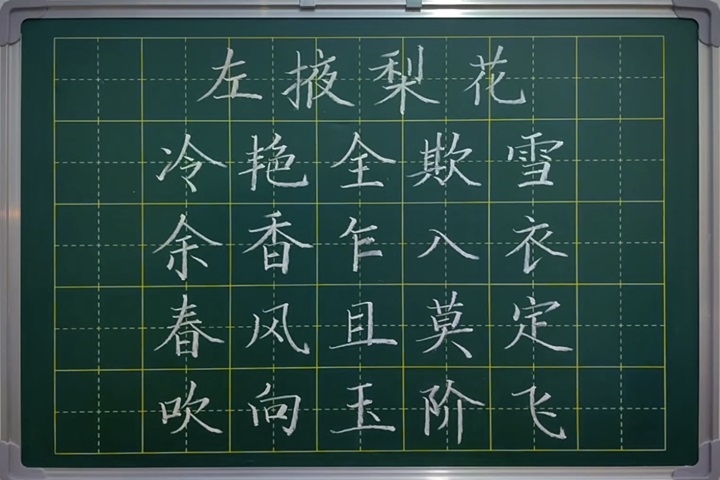 左掖梨花
冷艳全欺雪
余香乍入衣
春风且莫定
吹向玉阶飞